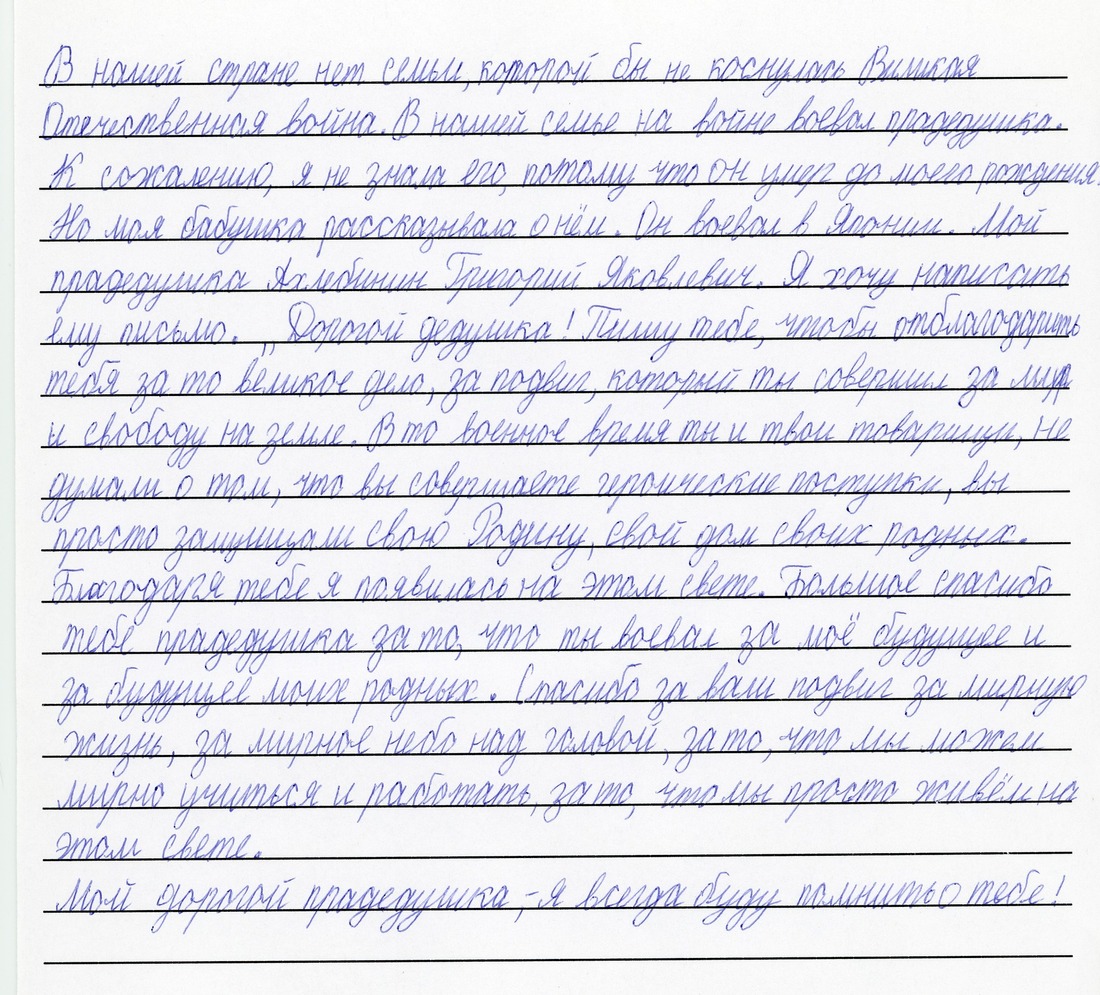 В нашей стране нет семьи, которой бы не коснулась Великая
Отечественная война. В нашей семье на войне воевал прадедушка.
К сожалению, я не знала его, потому что он умер до моего рождения.
Но моя бабушка рассказывала о нём. Он воевал в Японии. Мой
прадедушка Ахлебинин Григорий Яковлевич. Я хочу написать
ему письмо. „Дорогой дедушка! Пишу тебе, чтобы отблагодарить
тебя за то великое дело, за подвиг, который ты совершил за мир
и свободу на земле. В то военное время ты и твои товарищи, не
думали о том, что вы совершаете героические поступки, вы
просто защищали свою Родину, свой дом своих родных.
Благодаря тебе я появилась на этом свете. Большое спасибо
тебе прадедушка за то, что ты воевал за моё будущее и
за будущее моих родных. Спасибо за ваш подвиг за мирную
жизнь, за мирное небо над головой, за то, что мы можем
мирно учиться и работать, за то, что мы просто живём на
этом свете.
Мой дорогой прадедушка,-я всегда буду помнить о тебе!